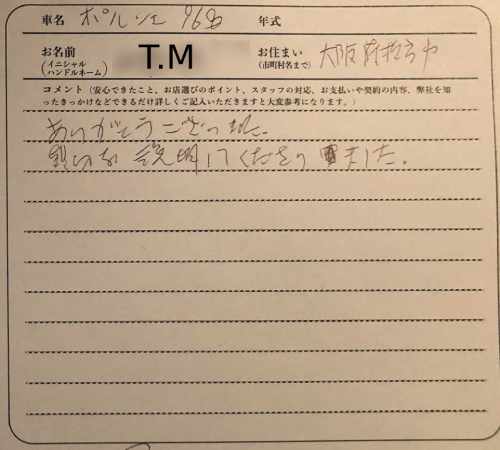 車名 ポルシェ 968 年式
お名前 (イニシャル ハンドルネーム) T.M お住まい (市町村名まで) 大阪府枚方市
コメント（安心できたこと、お店選びのポイント、スタッフの対応、お支払いや契約の内容、弊社を知
ったきっかけなどできるだけ詳しくご記入いただきますと大変参考になります。）
ありがとうございました。
説明してくださりました。